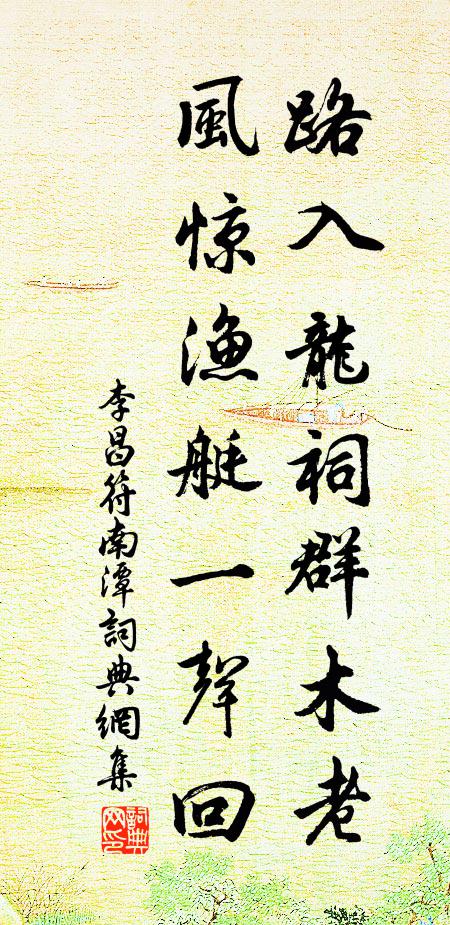 路入龍祠群木老
風惊漁艇一聲回
李昌符南潭詞典網集
詞典
网印